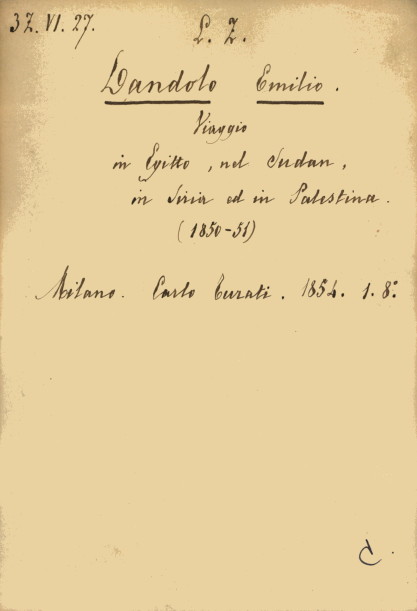 37. VI. 27.
L. Z.
Dandolo Emilio.
Viaggio
in Egitto, nel Sudan,
in Siria ed in Palestina.
(1850-51)
Milano. Carlo Turati. 1854. 1. 8.°
C.